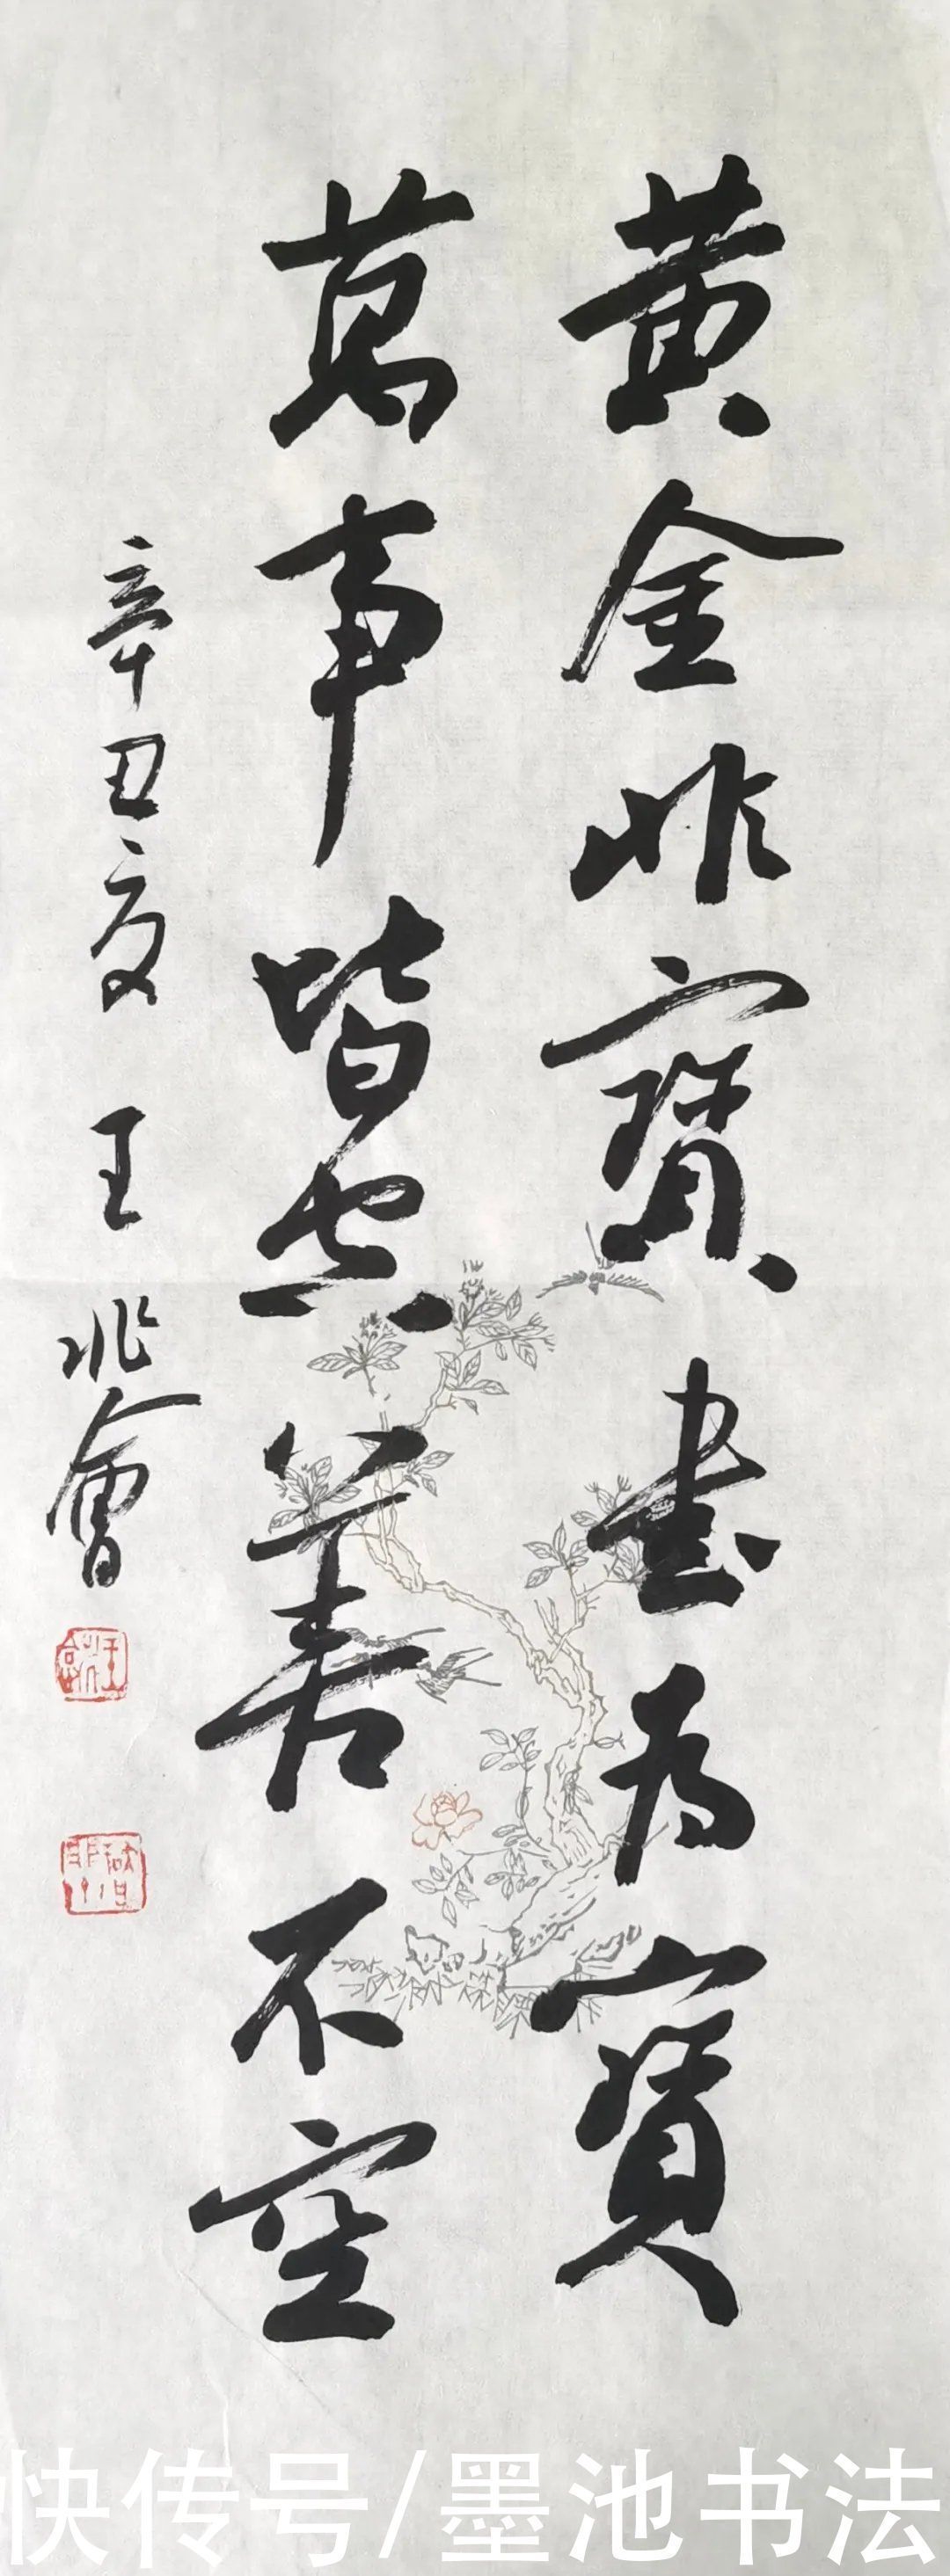 黄金非寶書為寶
萬事皆空善不空
辛丑夏 王兆會
快传号/墨池书法